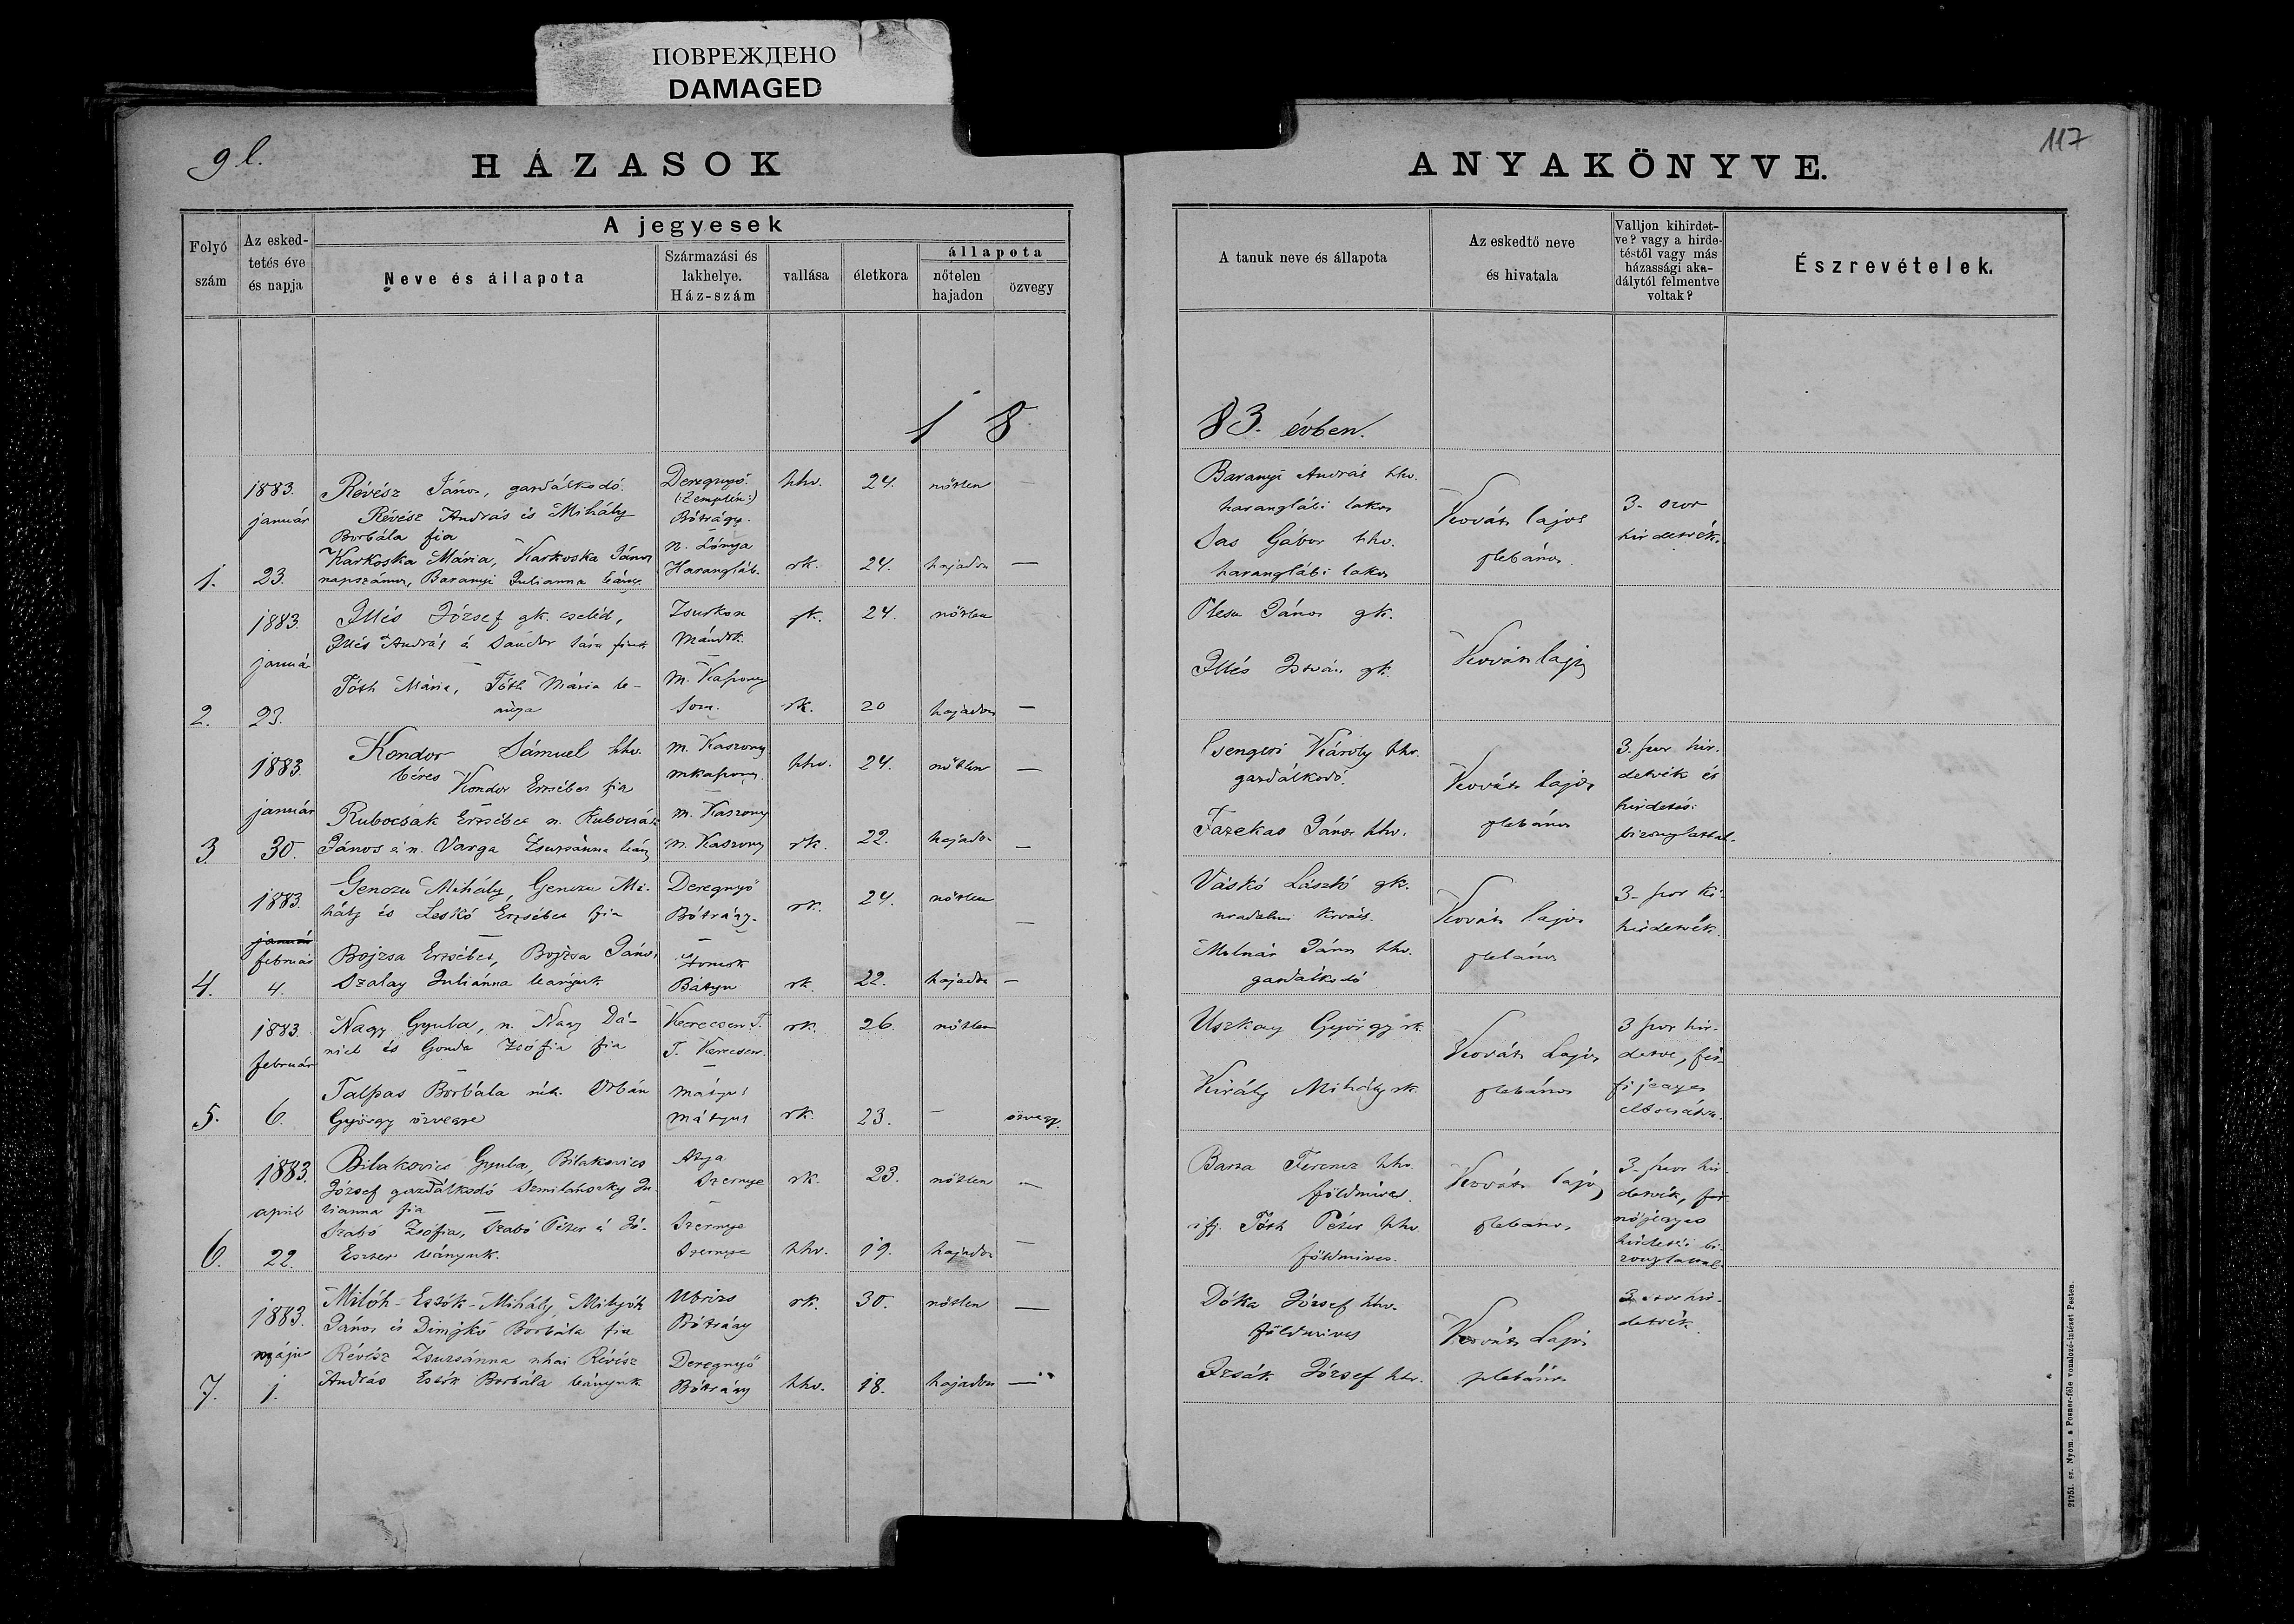 ПОВРЕЖДЕНО
DAMAGED
9 l.
117
HÁZASOK
ANYAKÖNYVE.
Folyó szám
Az esked-
tetés éve
és napja
A jegyesek
Neve és állapota
Származási és
lakhelye.
Ház-szám
vallása
életkora
állapota
nőtelen
hajadon
özvegy
A tanuk neve és állapota
Az eskedtő neve
és hivatala
Valljon kihirdet-
ve? vagy a hirde-
téstől vagy más
házassági aka-
dálytól felmentve
voltak?
Észrevételek.
18
83. évben.
1.
1883.
január
23.
Révész János, gazdálkodó.
Révész András és Mihály
Borbála fia
Karkoska Mária, Karkoska János
napszámos, Baranyi Julianna leány.
Deregnyő.
(:Zemplén:)
Bótrágy.
n. Lónya
Harangláb.
hhv. 24. nőtlen
rk. 24. hajadon —
Baranyi András hhv.
haranglábi lakos
Sas Gábor hhv.
haranglábi lakos
Kováts Lajos
plebános.
3-szor
hirdetvék.
2.
1883.
január
23.
Illés József gk. cseléd,
Illés András és Sándor Sára fiuk
Tóth Mária, Tóth Mária le-
ánya
Zsurkon
Mándok.
M. Kaszony
Som.
gk. 24. nőtlen
rk. 20 hajadon —
Plesa János gk.
Illés István gk.
Kováts Lajos
3
1883.
január
30.
Kondor Sámuel hhv.
béres
Kondor Erzsébet fia
Rubocsák Erzsébet n. Rubocsák
János és n. Varga Zsuzsánna leány
M. Kaszony
mkaszony.
M. Kaszony
M. Kaszony
hhv. 24. nőtlen —
rk. 22. hajadon —
Csengeri Károly hhv.
gazdálkodó.
Fazekas János hhv.
Kováts Lajos
plebános
3. szor hir-
detvék és
hirdetési
bizonylattal.
4.
1883.
január
február
4.
Genczu Mihály, Genczu Mi-
hály és Leskó Erzsébet fia
Bojzsa Erzsébet, Bojzsa János
Szalay Juliánna leányuk
Deregnyő
Bótrágy.
Bátyu
rk. 24. nőtlen —
rk. 22. hajadon —
Váskó László gk.
uradalmi kovács.
Molnár János hhv.
gazdálkodó
Kováts Lajos
plebános
3-szor ki-
hirdetvék.
5.
1883.
február
6.
Nagy Gyula, n. Nagy Dá-
niel és Gonda Zsófia fia
Talpas Borbála néh. Orbán
György özvegye
Kerecsen T.
T. Kerecsen.
Mátyus
Mátyus
rk. 26. nőtlen
rk. 23. — özvegy.
Uszkay György rk.
Király Mihály rk.
Kováts Lajos
plebános
3 szor hir-
detve, fér-
fi jegyes
elbocsátva.
6.
1883.
april
22.
Bilakovics Gyula, Bilakovics
József gazdálkodó Szmilánszky Ju-
lianna fia
Szabó Zsófia, Szabó Péter és Jó-
Eszter leányuk.
Szernye
Szernye
Szernye
rk. 23. nőtlen —
hhv. 19. hajadon —
Barza Ferencz hhv.
földmives.
ifj. Tóth Péter hhv
földmives.
Kováts Lajos
plebános.
3-szor hir-
detvék,
nőjegyes
hirdetési bi-
zonylattal.
7.
1883.
május
1.
Milóh-Eszök-Mihály, Milyóh
János és Dimjkó Borbála fia
Révész Zsuzsánna néhai Révész
András Eszök Borbála leányuk
Ubrizs
Bótrágy
Deregnyő
Bótrágy
rk. 30. nőtlen —
hhv. 18. hajadon —
Dóka József hhv.
földmives
Izsák József hhv.
Kováts Lajos
plebános
3 szor hir-
detvék.
21751. sz. Nyom. a Posner-féle vonalozó-intézet Pesten.